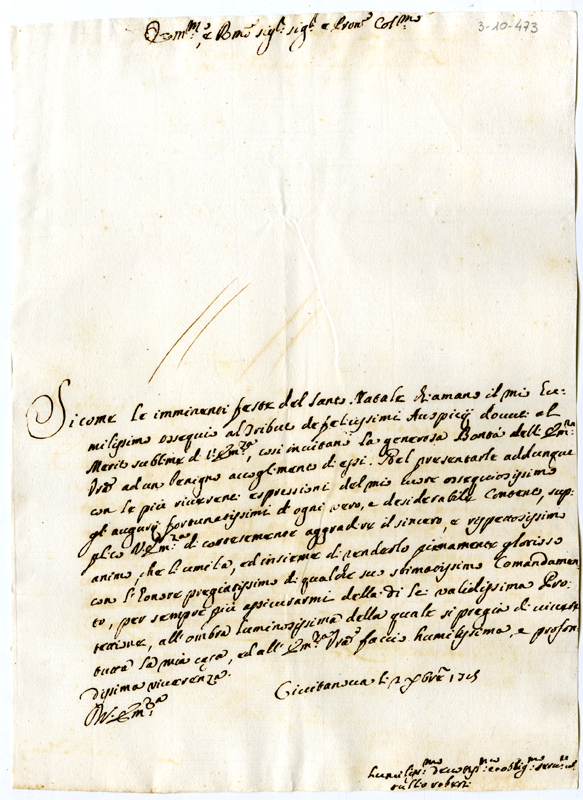 3-10-473
Em.mo e Rmo Sig.r Sig.r e Pron.e Col.mo
Sicome le imminenti feste del Santo Natale chiamano il mio
milissimo ossequio al Tributo de felicissimi Auspicij douuti al
Merito sublime di V. Em.za, cosi incitano la generosa Bontà dell' Em.za
Vra ad un benigno accoglimento di essi. Nel presentarle addunque
con le più riuerenti espressioni del mio cuore ossequiosissimo
gl' augurij fortunatissimi di ogni vero, e desiderabile Contento, sup-
plico V. Em.za di cortesemente aggradire il sincero, e rispettosissimo
animo, che l' umilia, ed insieme di renderlo pienamente glorioso
con l' honore pregiatissimo di qualche suo stimatissimo Comandamen
to, per sempre più assicurarmi della di lei validissima Prot-
tezione, all' ombra luminosissima della quale si pregia di
la mia casa, ed all' Em.za Vra faccio humilissima, e profon
dissima riuerenza.
Di V. Em.za
Ciuitanoua li 2 Xbre 1715
humiliss.mo deuotiss.mo et oblig.mo